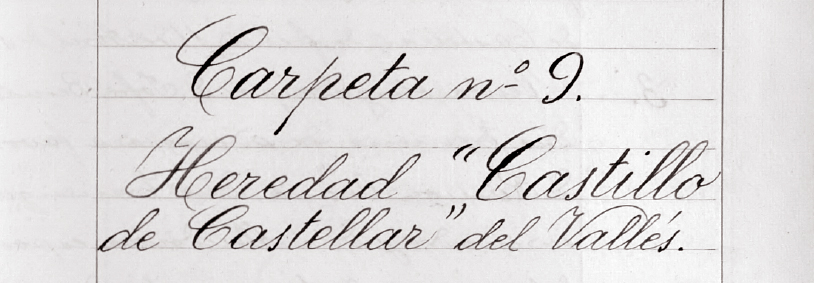 Carpeta nº 9.
Heredad "Castillo
de Castellar" del Vallés.